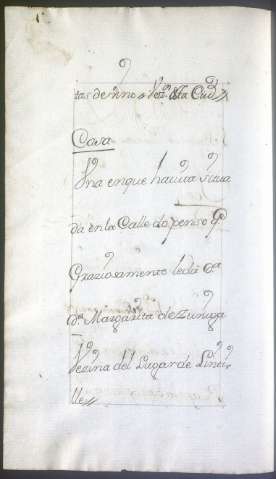 tas de vino a Vezº desta Ciud
Casa
Una en que havita situa
da en la Calle
Graziosamente leda
Dª Margarita de Zuniga
Vezina del Lugar de Linei
lle